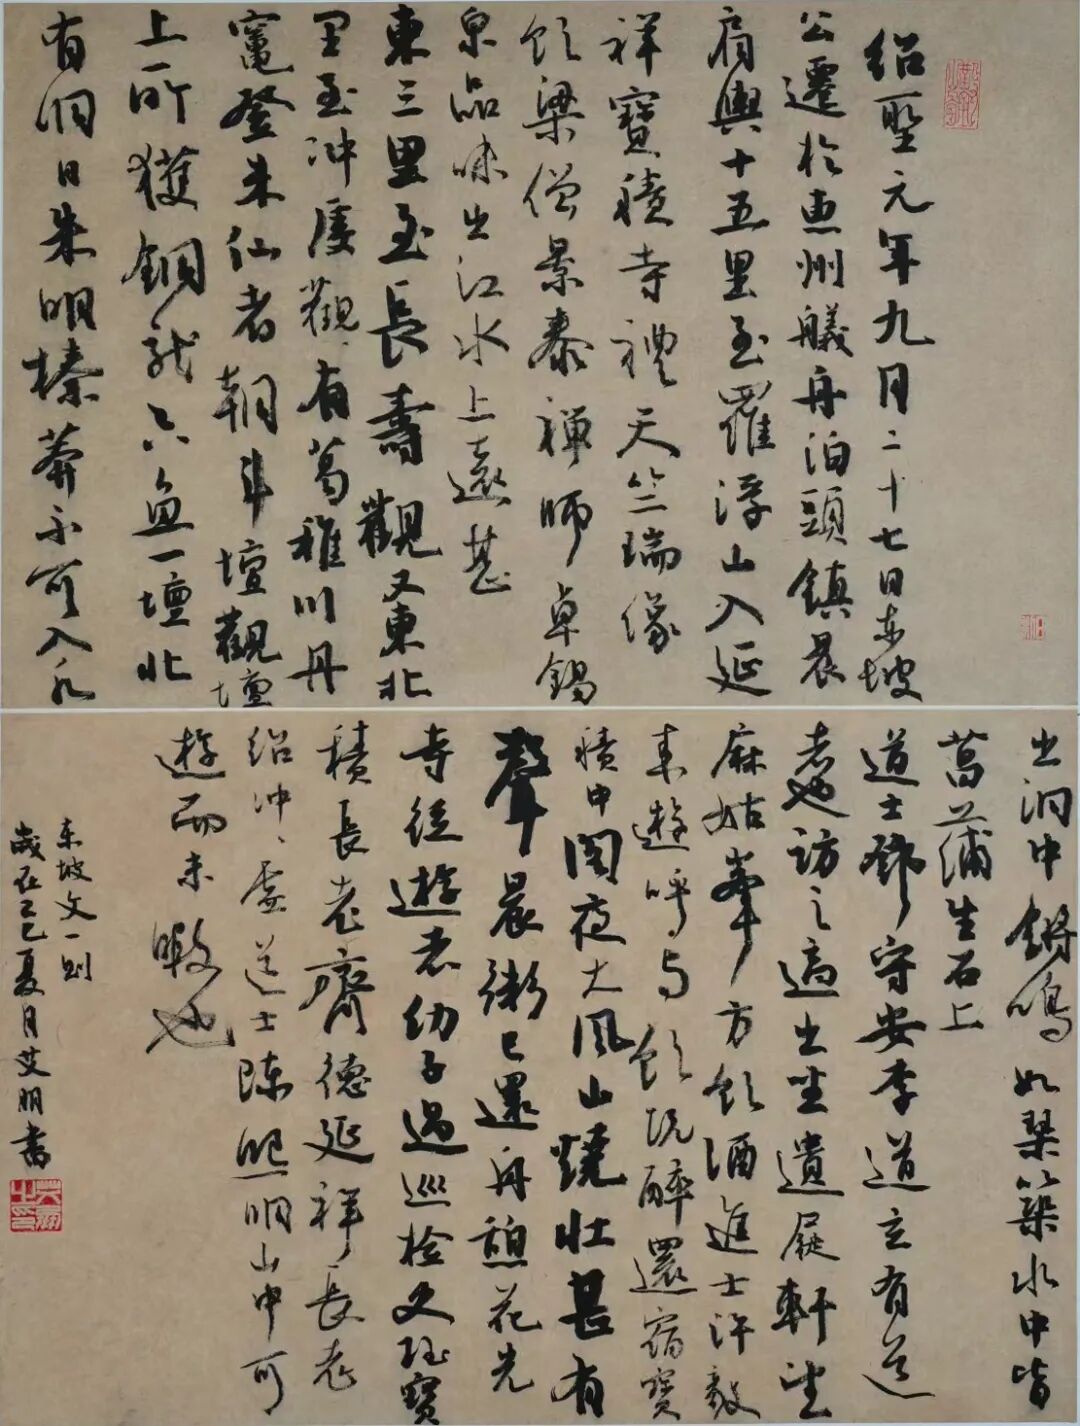 绍聖元年九月二十七日东坡
公遷於惠州艤舟泊頭鎮晨
肩輿十五里至羅浮山入延
祥寶積寺禮天竺瑞像
飲梁僧景泰禪師卓錫
泉品味出江水上遠甚
東三里至長壽觀又東北
里至冲虛觀有葛稚川丹
竈登朱仙者朝斗壇觀壇
上所獲銅龍六魚一壇北
有洞曰朱明榛莽不可入水
出洞中鏘鳴如琴筑水中皆
菖蒲生石上
道士鄧守安李道立有道
者也訪之適出坐遺屣軒望
麻姑峯方飲酒進士許毅
来遊呼与飲既醉還宿寶
積中閣夜大風山燒壯甚有
聲晨粥已還舟憩花光
寺從遊者幼子過巡检史珏寶
積長老齊德延祥長老
绍冲冲虚道士陳熙明山中可
遊而未暇也
东坡文一则
歲在己巳夏月艾朋書